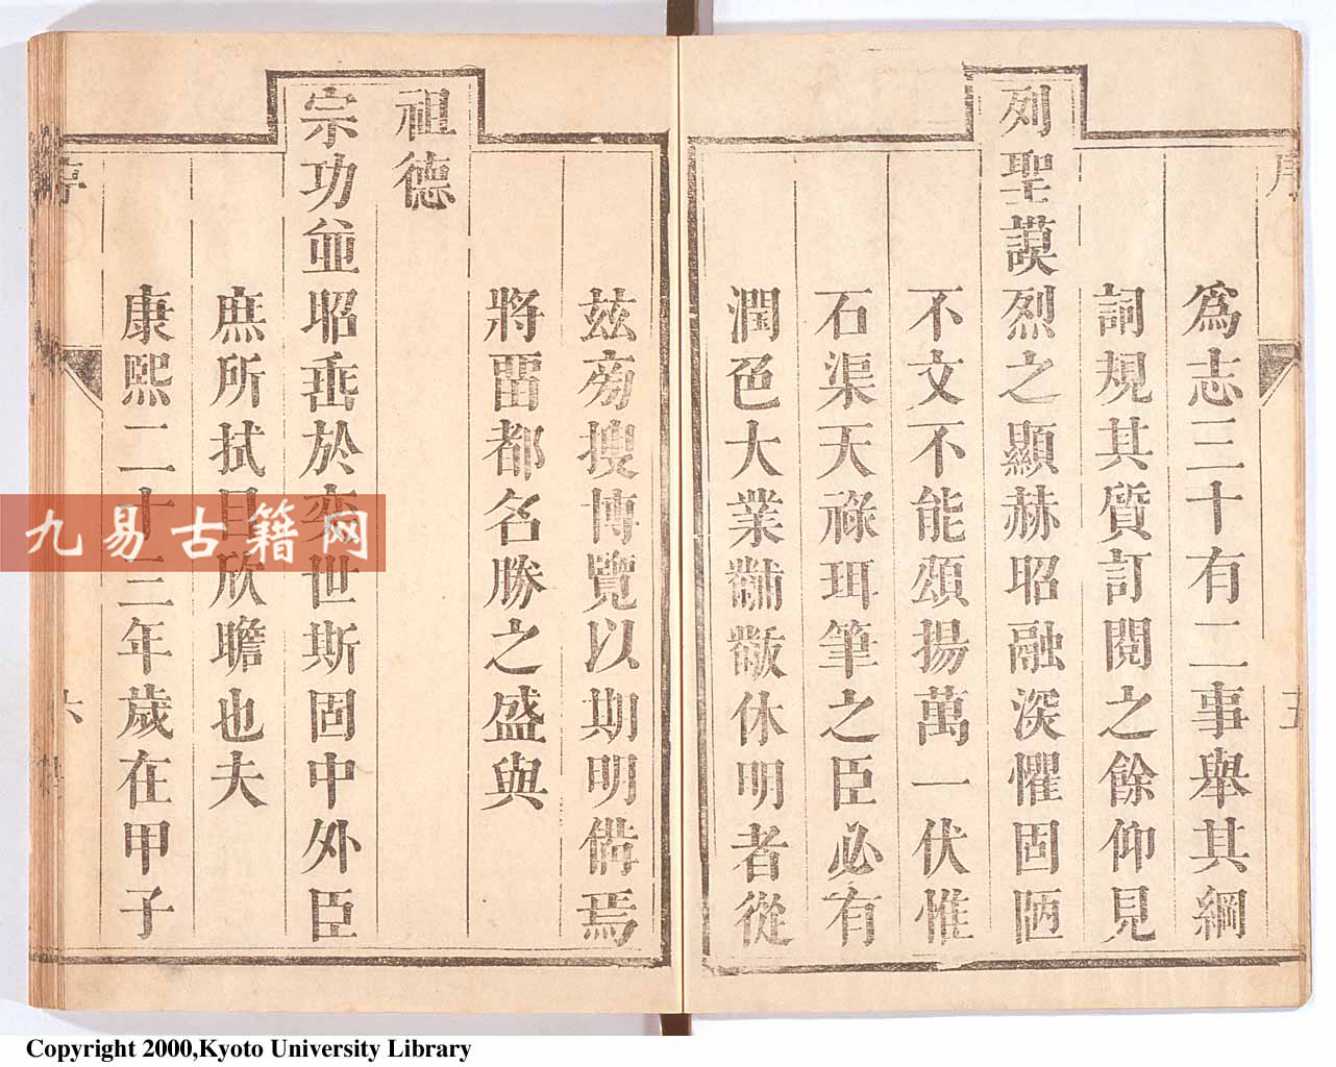 序
五
為志三十有二事舉其綱
詞規其質訂閱之餘仰見
列聖謨烈之顯赫昭融深懼固陋
不文不能頌揚萬一伏惟
石渠天祿珥筆之臣必有
潤色大業黼黻休明者從
茲旁搜博覽以期明備焉
將畱都名勝之盛與
祖德
宗功並昭垂於奕世斯固中外臣
庶所拭目欣瞻也夫
康熙二十三年歲在甲子
序
六
九易古籍网
Copyright 2000,Kyoto University Library